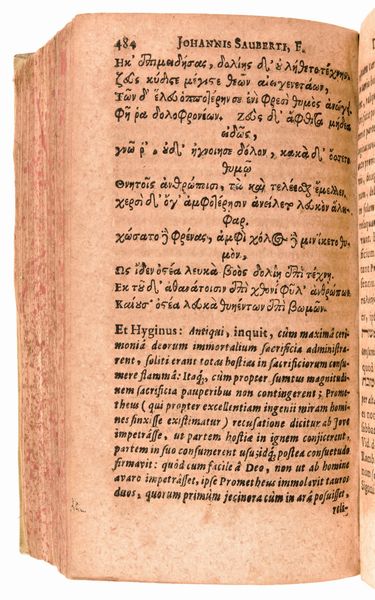 484 JOHANNIS SAUBERTI, F.
Ηκ' ἐπιμειδήσας, δολίης δ' οὐ λήθετο τέχνης.
ζεῦς κύδιστε μέγιστε θεῶν αἰειγενετάων,
Τῶν δ' ἕλευ ὁπποτέρην σε ἐνὶ φρεσὶ θυμὸς ἀνώγει.
Φῆ ῥα δολοφρονέων. Ζεὺς δ' ἄφθιτα μήδεα
εἰδὼς,
γνῶ ῥ', οὐδ' ἠγνοίησε δόλον, κακὰ δ' ὄσσετο
θυμῷ
Θνητοῖς ἀνθρώποισι, τὰ καὶ τελέεσθαι ἔμελλεν.
χερσὶ δ' ὅγ' ἀμφοτέρησιν ἀνείλετο λευκὸν ἄλει-
φαρ.
χώσατο δὲ φρένας, ἀμφὶ χόλος δέ μιν ἵκετο θυ-
μὸν,
Ως ἴδεν ὀστέα λευκὰ βοὸς δολίῃ ἐπὶ τέχνῃ.
Εκ τοῦ δ' ἀθανάτοισιν ἐπὶ χθονὶ φῦλ' ἀνθρώπων
Καίουσ' ὀστέα λευκὰ θυηέντων ἐπὶ βωμῶν.
Et Hyginus: Antiqui, inquit, cùm maximâ ceri-
moniâ deorum immortalium sacrificia administra-
rent, soliti erant totas hostias in sacrificiorum consu-
mere flammâ: Itaq;, cùm propter sumtus magnitudi-
nem sacrificia pauperibus non contingerent; Prome-
theus (qui propter excellentiam ingenii miram homi-
nes finxisse existimatur) recusatione dicitur ab Jove
impetrâsse, ut partem hostiæ in ignem conjicerent,
partem in suo consumerent usu: idq; postea consuetudo
firmavit: quòd cùm facile à Deo, non ut ab homine
avaro impetrâsset, ipse Prometheus immolavit tauros
duos, quorum primùm jecinora cùm in arâ posuisset,
reli-